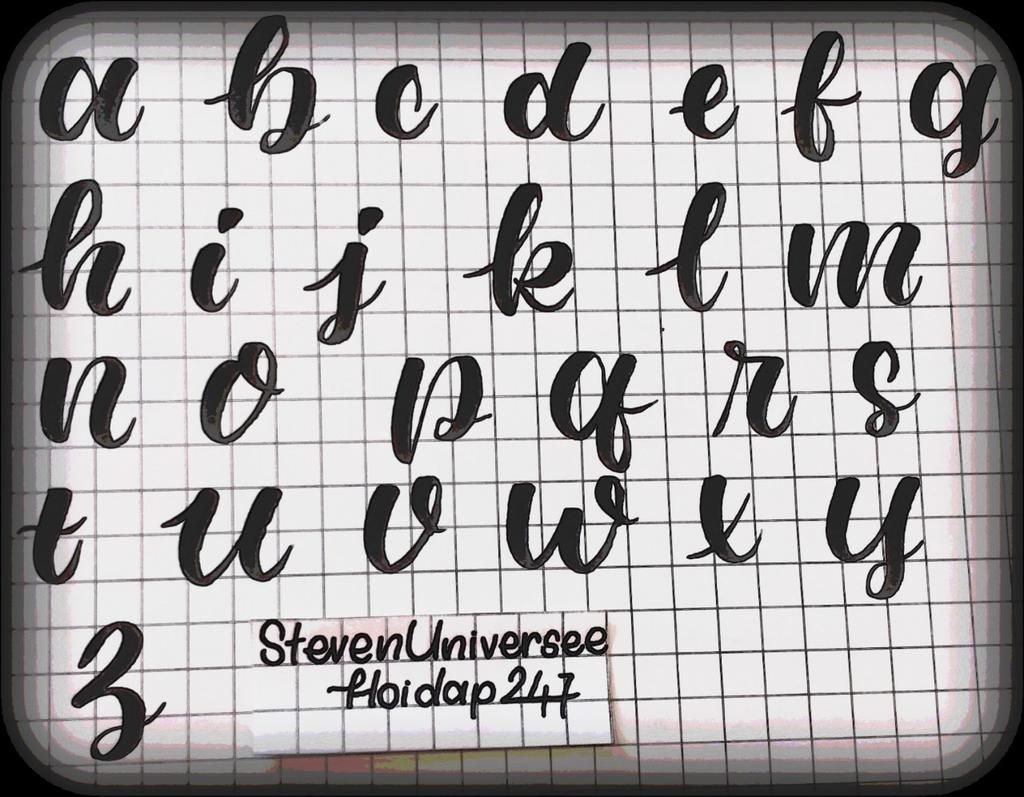 a b c d e f g
h i j k l m
n o p q r s
t u v w x y
z
StevenUniversee
Hoidap247